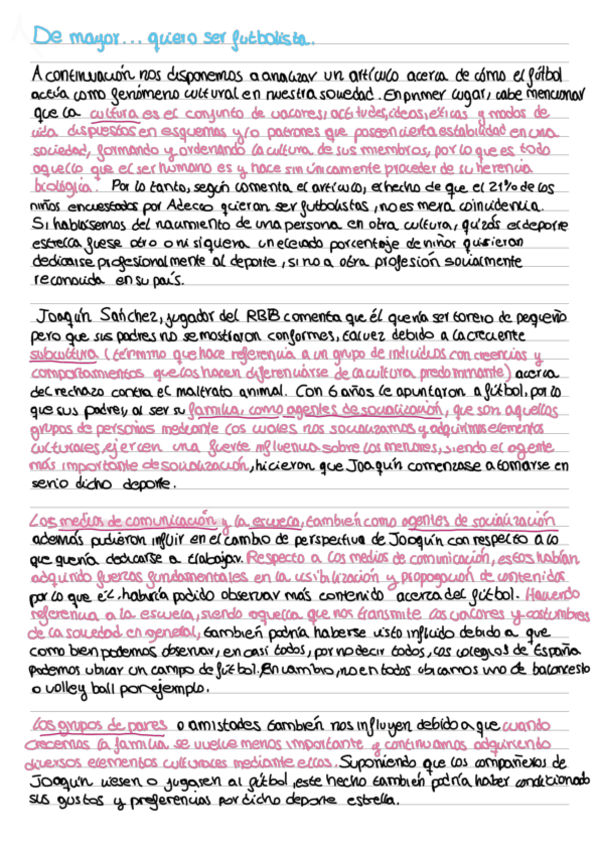 De mayor... quiero ser futbolista.
A continuación nos disponemos a analizar un artículo acerca de cómo el fútbol
actúa como fenómeno cultural en nuestra sociedad. En primer lugar, cabe mencionar
que la cultura es el conjunto de valores, actitudes, ideas, éticas y modos de
vida dispuestos en esquemas y/o patrones que poseen cierta estabilidad en una
sociedad, formando y ordenando la cultura de sus miembros, por lo que es todo
aquello que el ser humano es y hace sin únicamente proceder de su herencia
biológica. Por lo tanto, según comenta el artículo, el hecho de que el 21% de los
niños encuestados por Adecco quieran ser futbolistas, no es mera coincidencia.
Si hablásemos del nacimiento de una persona en otra cultura, quizás el deporte
estrella fuese otro o ni siquiera un elevado porcentaje de niños quisieran
dedicarse profesionalmente al deporte, si no a otra profesión socialmente
reconocida en su país.
Joaquín Sánchez, jugador del RBB comenta que él quería ser torero de pequeño
pero que sus padres no se mostraron conformes, tal vez debido a la creciente
subcultura (término que hace referencia a un grupo de individuos con creencias y
comportamientos que los hacen diferenciarse de la cultura predominante) acerca
del rechazo contra el maltrato animal. Con 6 años le apuntaron a fútbol, por lo
que sus padres, al ser su familia, como agentes de socialización, que son aquellos
grupos de personas mediante los cuales nos socializamos y adquirimos elementos
culturales, ejercen una fuerte influencia sobre los menores, siendo el agente
más importante de socialización, hicieron que Joaquín comenzase a tomarse en
serio dicho deporte.
Los medios de comunicación y la escuela, también como agentes de socialización
además pudieron influir en el cambio de perspectiva de Joaquín con respecto a lo
que quería dedicarse a trabajar. Respecto a los medios de comunicación, estos habían
adquirido fuerzas fundamentales en la visibilización y propagación de contenidos
por lo que él, habría podido observar más contenido acerca del fútbol. Haciendo
referencia a la escuela, siendo aquella que nos transmite los valores y costumbres
de la sociedad en general, también podría haberse visto influido debido a que
como bien podemos observar, en casi todos, por no decir todos, los colegios de España
podemos ubicar un campo de fútbol. En cambio, no en todos ubicamos uno de baloncesto
o volley ball por ejemplo.
Los grupos de pares o amistades también nos influyen debido a que cuando
crecemos la familia se vuelve menos importante y continuamos adquiriendo
diversos elementos culturales mediante ellos. Suponiendo que los compañeros de
Joaquín viesen o jugasen al fútbol, este hecho también podría haber condicionado
sus gustos y preferencias por dicho deporte estrella.